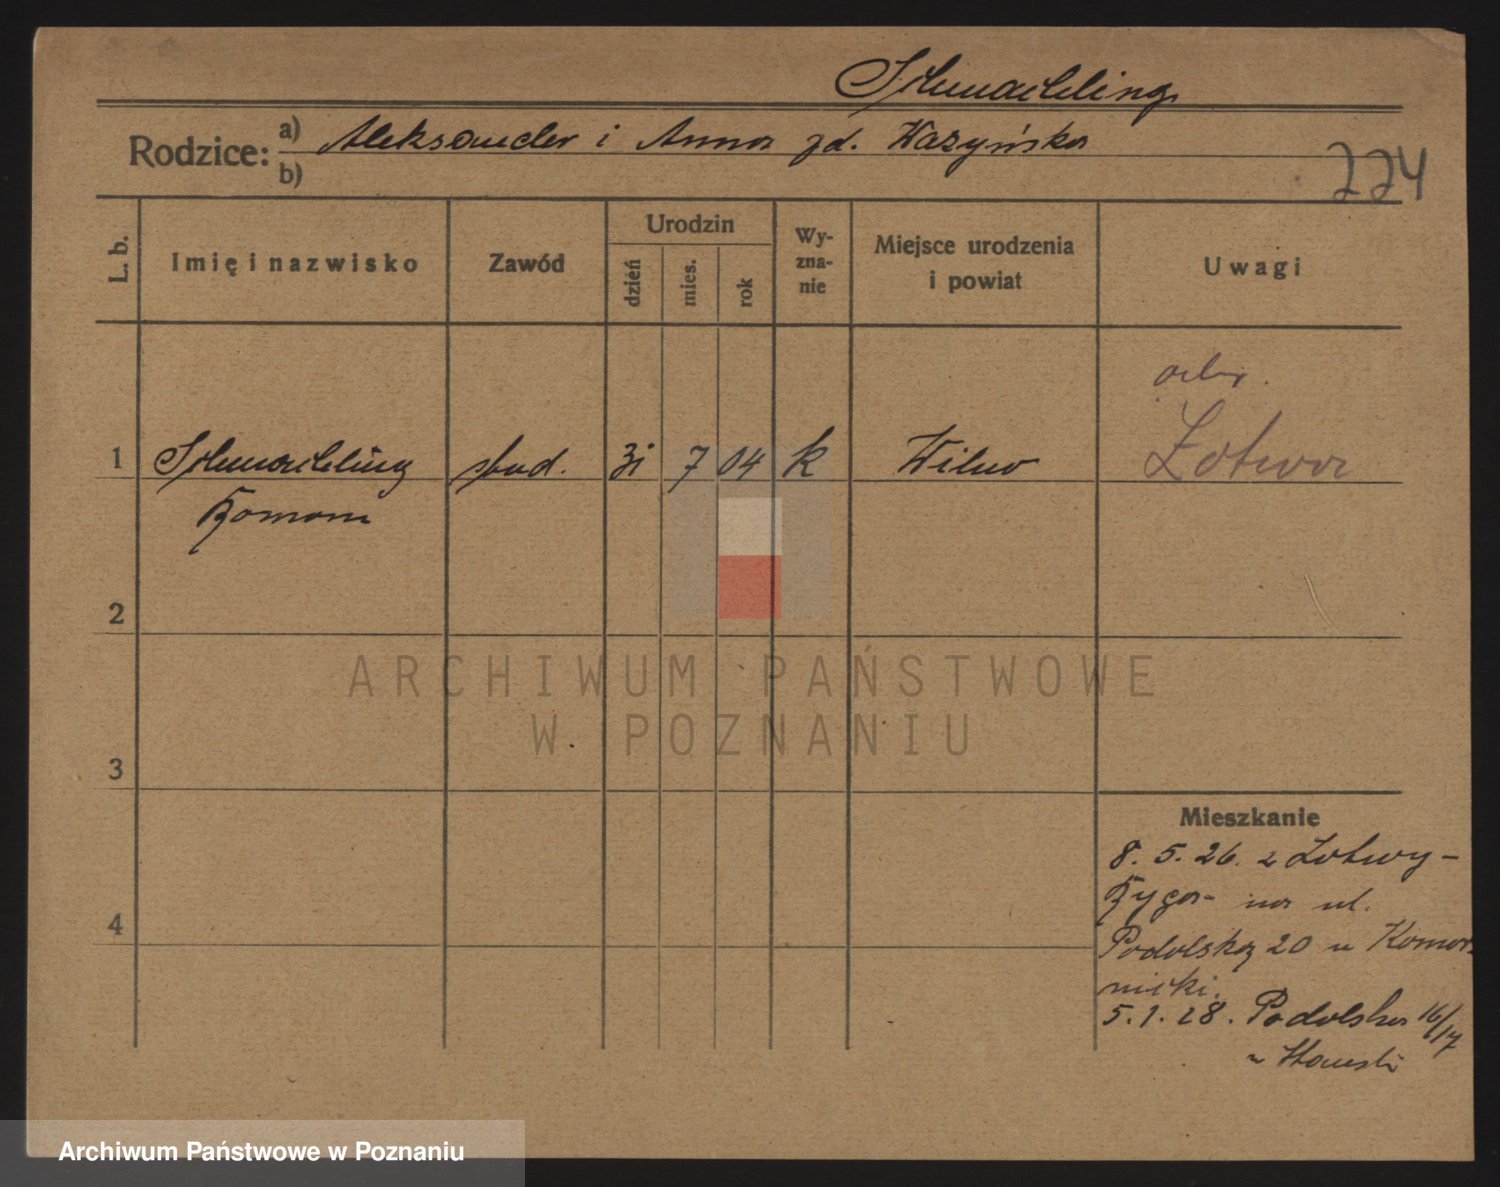 Schmaehling
Rodzice: a) Aleksander i Anna zd. Wazyńska
b)
224
L. b.
Imię i nazwisko
Zawód
Urodzin
dzień
mies.
rok
Wy-
zna-
nie
Miejsce urodzenia
i powiat
Uwagi
1 Schmaehling stud. 31 7 04 k Wilno Łotwa
Roman
2
3
4
Mieszkanie
8. 5. 26. z Łotwy -
Ryga - na ul.
Podolską 20 u Komor-
nicki.
5. 1. 28. Podolska 16/17
u
ARCHIWUM PAŃSTWOWE
W POZNANIU
Archiwum Państwowe w Poznaniu